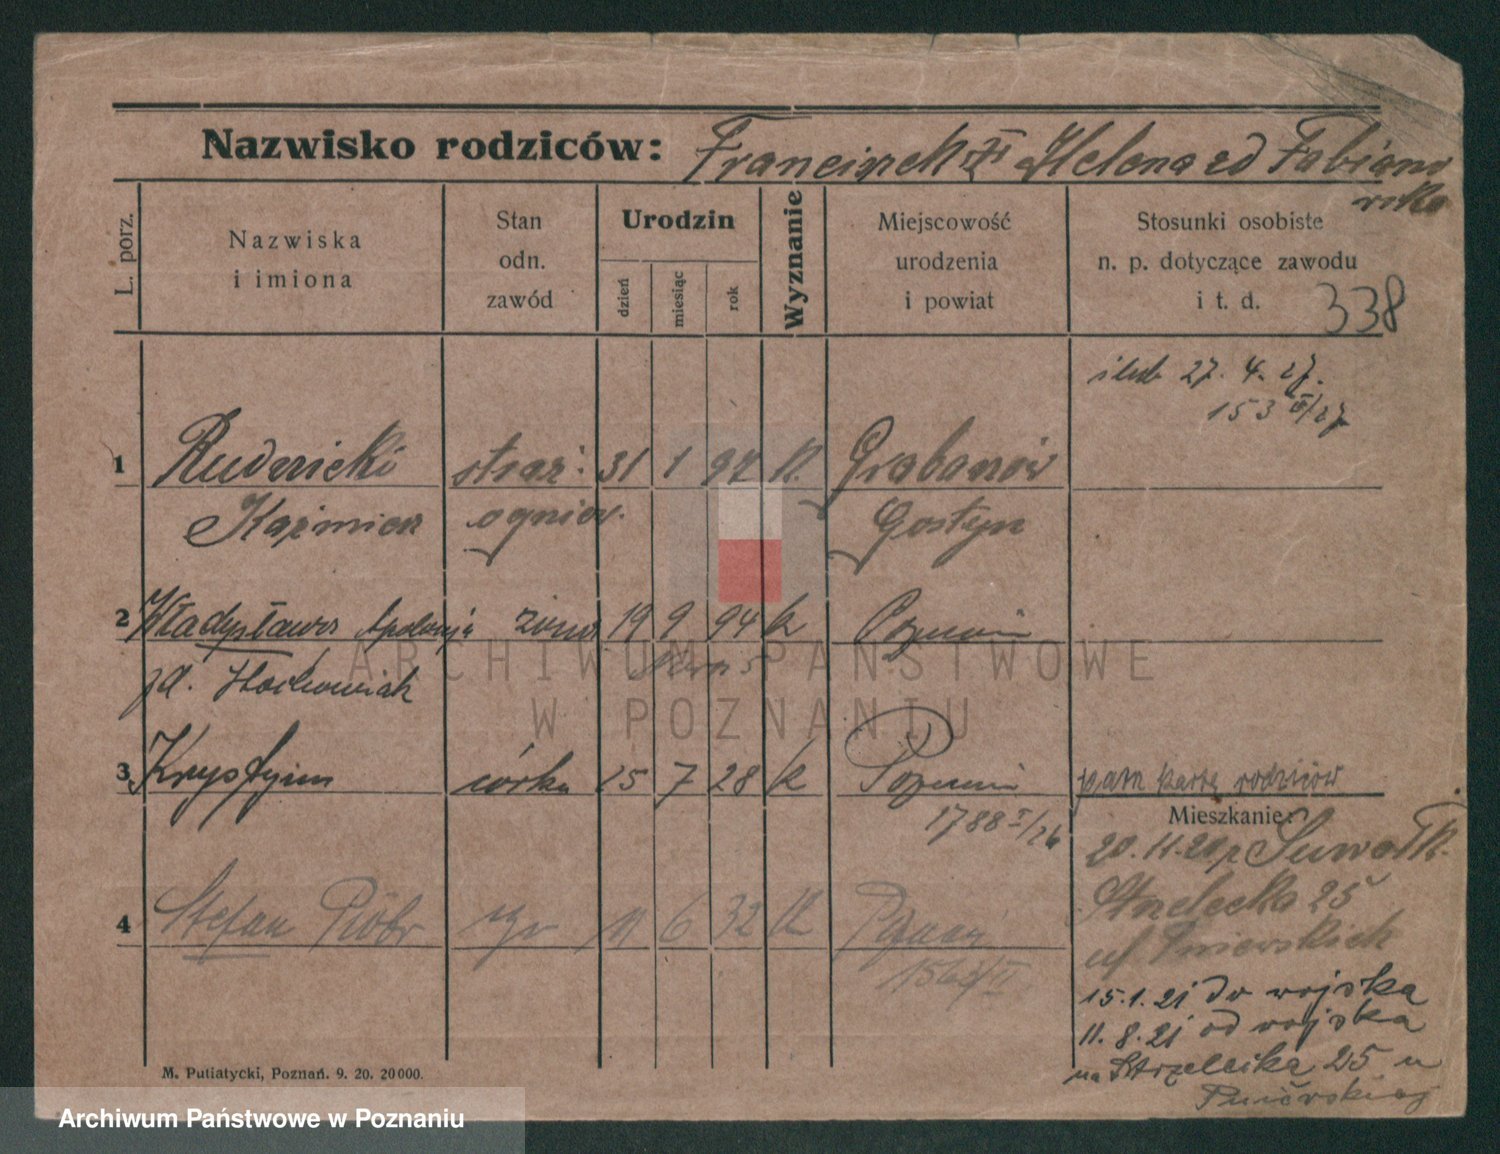 Nazwisko rodziców: Franciszek Helena zd Fabianowska
L. porz.
Nazwiska
i imiona
Stan
odn.
zawód
Urodzin
dzień
miesiąc
rok
Wyznanie
Miejscowość
urodzenia
i powiat
Stosunki osobiste
n. p. dotyczące zawodu
i t. d.
338
27. 4. 27.
153 /27
1 Rudzicki straż: 31 1 97 K. Grabonów
Kaźmierz ogniow. Gostyn
2 Władysława Apolonja żona 19 9 94 k Poznań
zd.
3 Krystyna córka 15 7 28 k Poznań pam kartę rodziców
1788 /26
Mieszkanie:
20.11.20 z Suwałk.
Strzelecka 25
4 Stefan Piotr syn 11 6 32 K Poznań
15.1.21 do wojska
11.8.21 od wojska
na Strzelecka 25 u
M. Putiatycki, Poznań. 9. 20. 20000.
ARCHIWUM PAŃSTWOWE
W POZNANIU
Archiwum Państwowe w Poznaniu